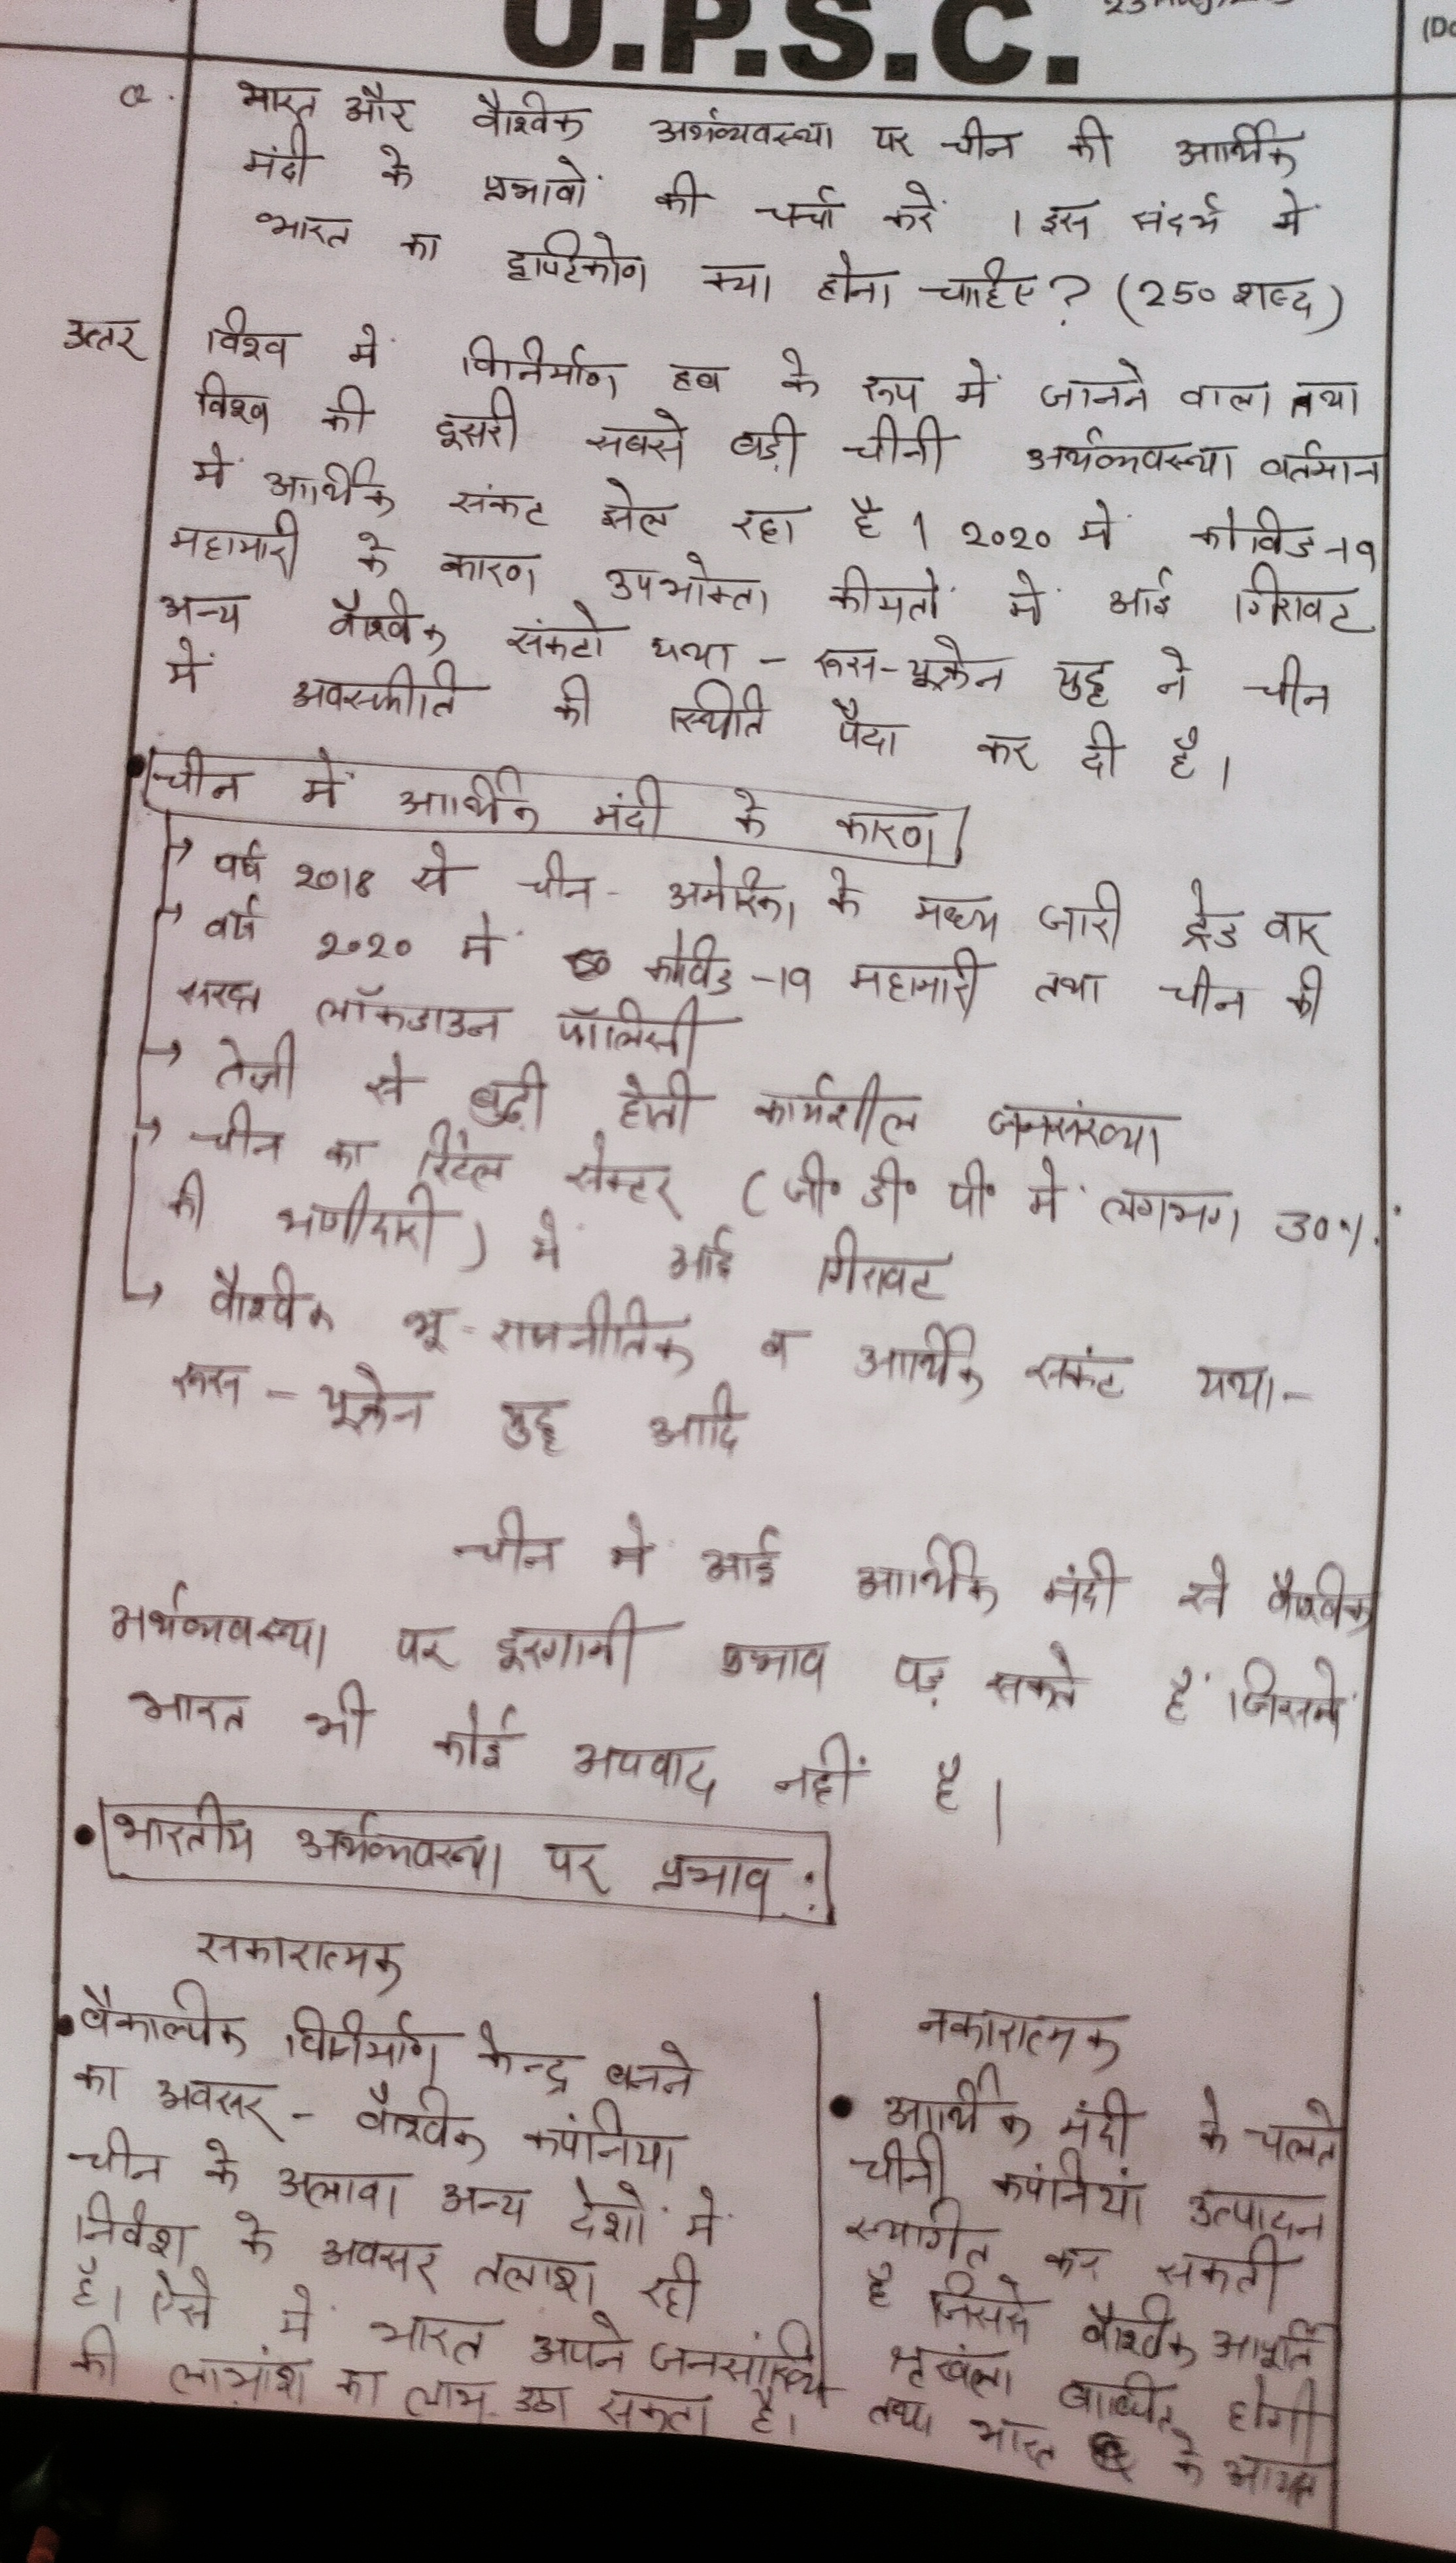 U.P.S.C.
(Do
Q. भारत और वैश्विक अर्थव्यवस्था पर चीन की आर्थिक
मंदी के प्रभावों की चर्चा करें । इस संदर्भ में
भारत का दृष्टिकोण क्या होना चाहिए? (250 शब्द)
उत्तर विश्व में विनिर्माण हब के रूप में जानने वाला तथा
विश्व की दूसरी सबसे बड़ी चीनी अर्थव्यवस्था वर्तमान
में आर्थिक संकट झेल रहा है। 2020 में कोविड-19
महामारी के कारण उपभोक्ता कीमतों में आई गिरावट
अन्य वैश्विक संकटो यथा - रूस-यूक्रेन युद्ध ने चीन
में अवस्फीति की स्थिति पैदा कर दी है।
• चीन में आर्थिक मंदी के कारण
→ वर्ष 2018 से चीन - अमेरिका के मध्य जारी ट्रेड वार
→ वर्ष 2020 में कोविड-19 महामारी तथा चीन की
सख्त लॉकडाउन पॉलिसी
→ तेजी से बुढ़ी होती कार्यशील जनसंख्या
→ चीन का रिटेल सेक्टर (जी॰ डी॰ पी॰ में लगभग 30%
की भागीदारी) में आई गिरावट
→ वैश्विक भू-राजनीतिक व आर्थिक संकट यथा-
रूस - यूक्रेन युद्ध आदि
चीन में आई आर्थिक मंदी से वैश्विक
अर्थव्यवस्था पर दूरगामी प्रभाव पड़ सकते हैं जिसमें
भारत भी कोई अपवाद नहीं है।
• भारतीय अर्थव्यवस्था पर प्रभाव :
सकारात्मक
• वैकल्पिक विनिर्माण केन्द्र बनने
का अवसर - वैश्विक कंपनिया
चीन के अलावा अन्य देशों में
निवेश के अवसर तलाश रही
है। ऐसे में भारत अपने जनसांख्यि
की लाभांश का लाभ उठा सकता है।
नकारात्मक
• आर्थिक मंदी के चलते
चीनी कंपनियां उत्पादन
स्थगित कर सकती
है जिससे वैश्विक आपूर्ति
श्रृखंला बाधित होगी
तथा भारत के